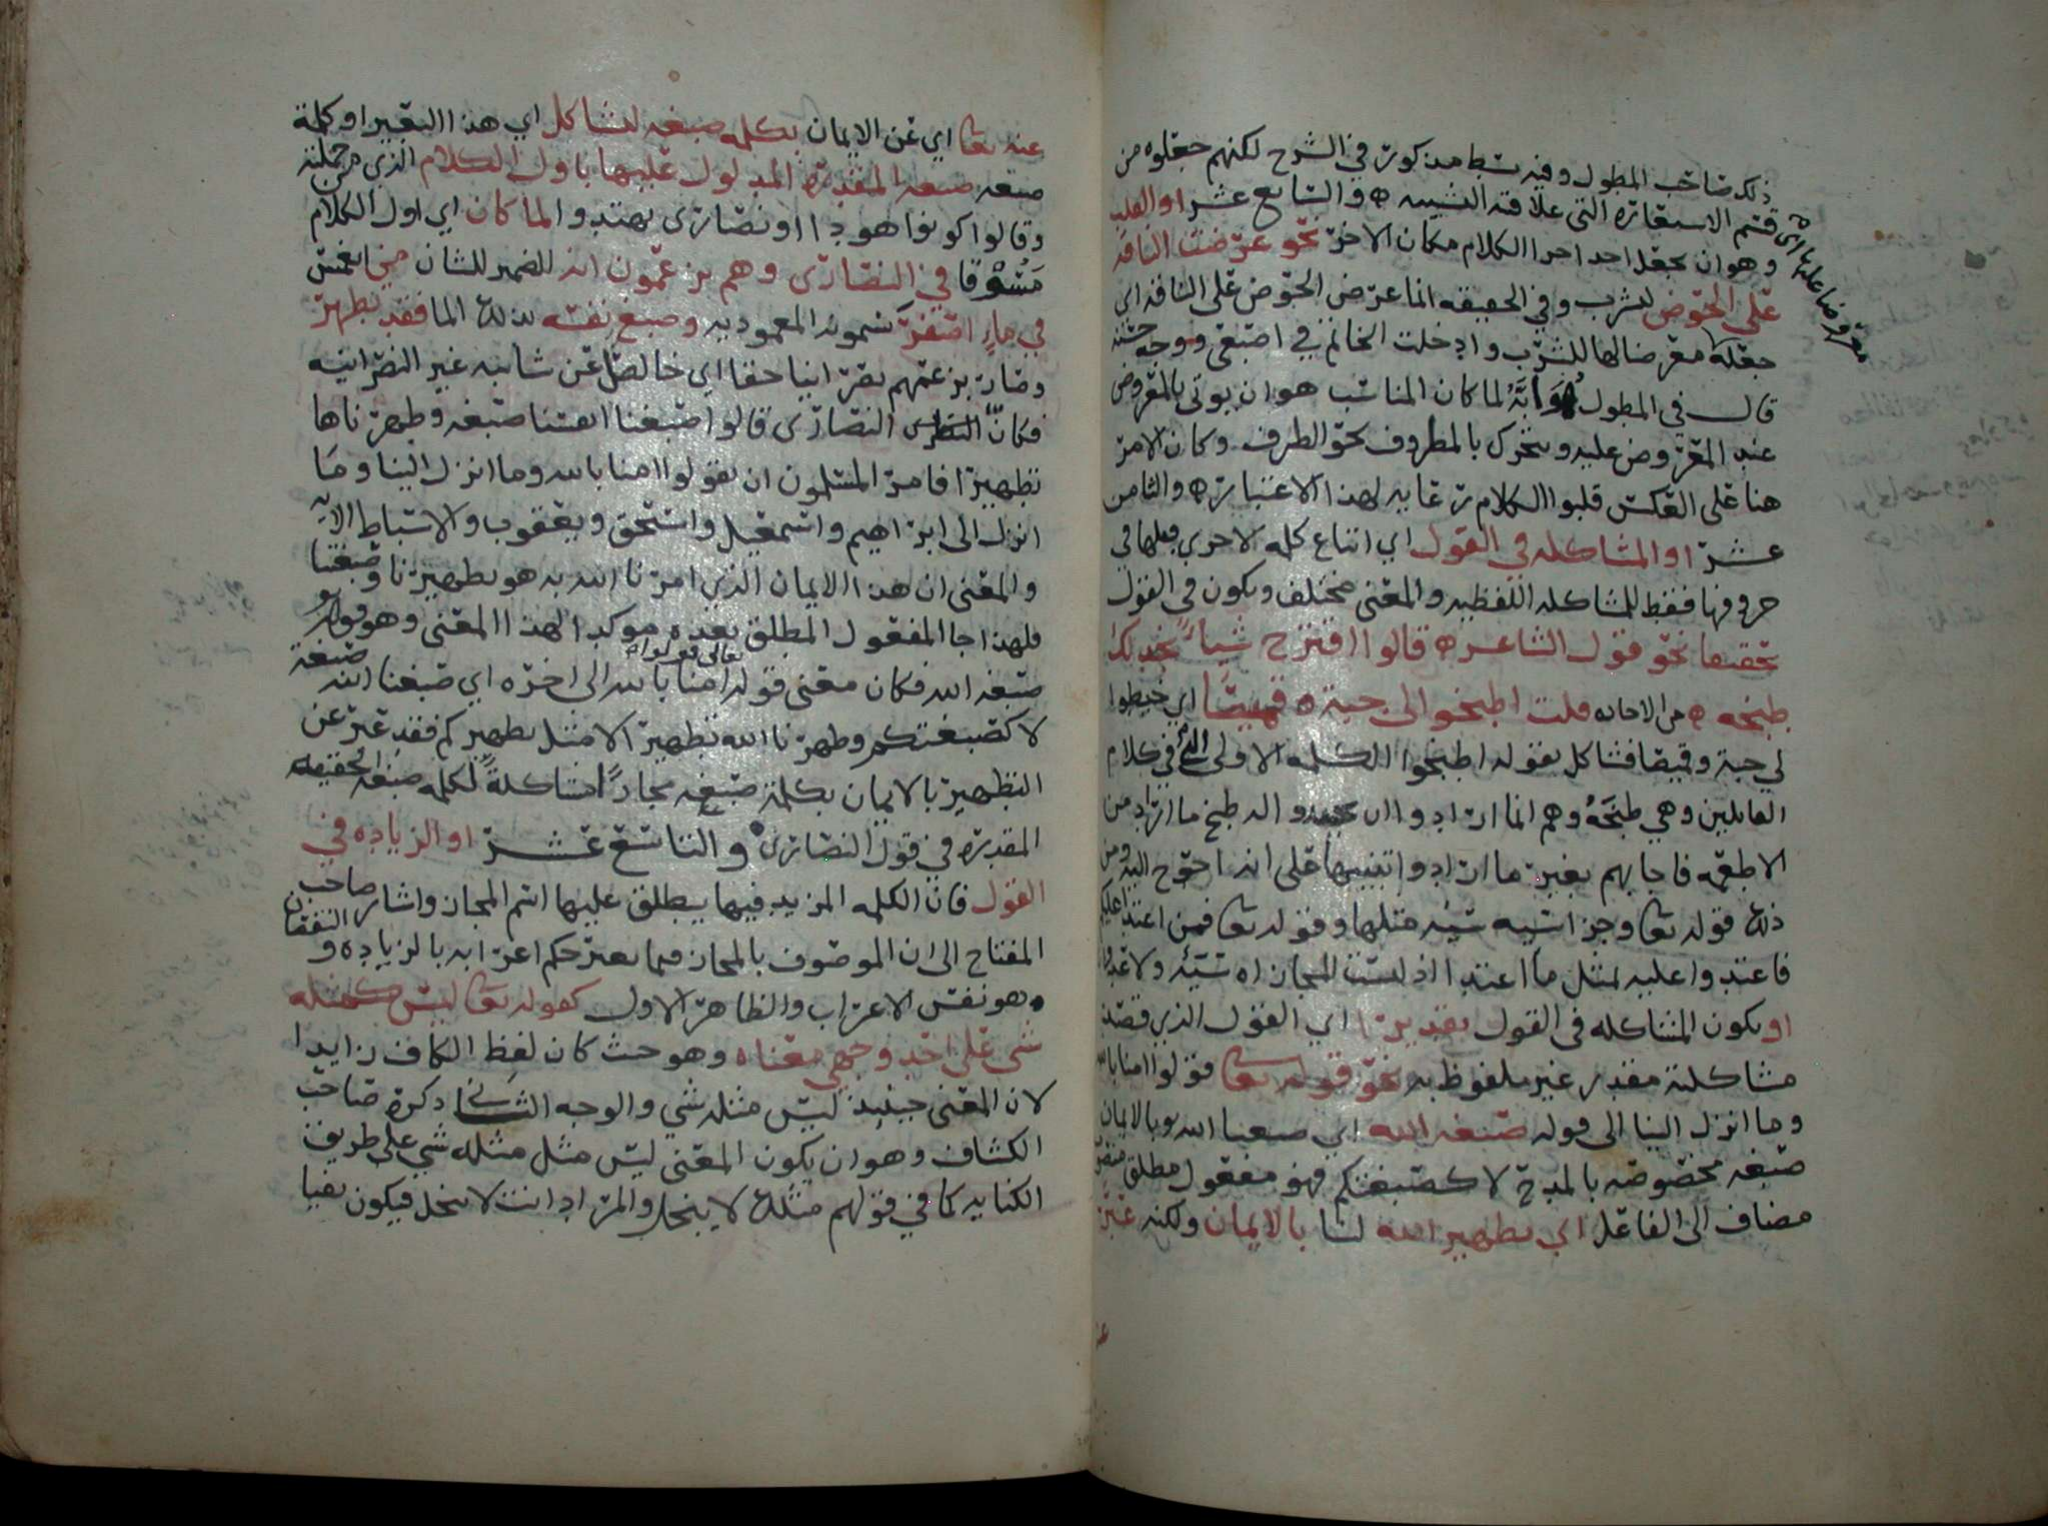 ذلك صاحب المطول وفيه بسط مذكور في الشرح لكنهم جعلوه من
قسم الاستعارة التي علاقة التشبيه ه والسابع عشر او القلب
وهو ان يجعل احد اجزا الكلام مكان الاخر نحو عرضت الناقة
على الحوض لتشرب وفي الحقيقة انما عرض الحوض على الناقة اي
جعله معرضا لها للشرب وادخلت الخاتم في اصبعي ووجه حسنه
قال في المطول هو انه لما كان المناسب هو ان يوتى بالمعروض
عند المعروض عليه ويتحرك بالمظروف نحو الظرف وكان الامر
هنا على العكس قلبوا الكلام رعاية لهذا الاعتبار ه والثامن
عشر او المشاكله في القول اي اتباع كلمه لاخرى بجعلها في
حروفها فقط للمشاكله اللفظيه والمعنى مختلف ويكون في القول
تحقيقا نحو قول الشاعر ه قالوا اقترح شيأ نجد لك
طبخه ه من الاجاده قلت اطبخوا لي جبة ه وقميصا اي خيطوا
لي جبة وقميصا فشاكل بقوله اطبخوا الكلمه الاولى التي في كلام
القايلين وهي طبخه وهم انما ارادوا ان يجيدوا له طبخ ما اراد من
الاطعمه فاجابهم بغير ما ارادوا تنبيها على انه احوج اليه ومن
ذلك قوله تعا وجزا سيئه سيئه مثلها وقوله تعا فمن اعتدا عليكم
فاعتدوا عليه بمثل ما اعتدا اذ ليست المجازاه سيئه ولا عدوانا
او يكون المشاكله في القول تقديرا اي القول الذي قصد
مشاكلته مقدر غير ملفوظ به نحو قوله تعا قولوا امنا بالله
وما انزل الينا الى قوله صبغه الله اي صبغنا الله بالايمان
صبغه مخصوصه بالمدح لا كصبغتكم فهو مفعول مطلق
مضاف الى الفاعل اي تطهير الله لنا بالايمان ولكنه عبر
معروضا عليه اي
عنه تعا اي عن الايمان بكلمه صبغه لتشاكل اي هذا التعبير او كلمة
صبغه صبغه المقدره المدلول عليها باول الكلام الذي من جملته
وقالوا كونوا هودا او نصارى تهتدوا لما كان اي اول الكلام
مسوقا في النصارى وهم يزعمون انه الضمير للشان من انغمس
في ماء اصفر يسمونه المعموديه وصبغ نفسه بذلك الما فقد تطهر
وصار بزعمهم نصرانيا حقا اي خالصا عن شائبه غير النصرانيه
فكانّ النصارى قالوا اصبغنا انفسنا صبغه وطهرناها
تطهيرا فامر المسلمون ان يقولوا امنا بالله وما انزل الينا وما
انزل الى ابراهيم واسمعيل واسحق ويعقوب والاسباط الايه
والمعنى ان هذا الايمان الذي امرنا الله به هو تطهيرنا وصبغتنا
فلهذا جا المفعول المطلق بعده موكدا لهذا المعنى وهو قوله
صبغه الله فكان معنى قوله تعالى قولوا امنا بالله الى اخره اي صبغنا الله صبغة
لا كصبغتكم وطهرنا الله تطهيرا لا مثل تطهيركم فقد عبر عن
التطهير بالايمان بكلمة صبغه مجازًا مشاكلةً لكلمه صبغه الحقيقه
المقدره في قول النصارى ه والتاسع عشر او الزياده في
القول فان الكلمه المزيد فيها يطلق عليها اسم المجاز واشار صاحب
المفتاح الى ان الموصوف بالمجاز فيما يعتبر حكم اعرابه بالزياده والنقصان
هو نفس الاعراب والظاهر الاول كقوله تعا ليس كمثله
شي على احد وجهي معناه وهو حيث كان لفظ الكاف زايدا
لان المعنى حينيذ ليس مثله شي والوجه الثاني ذكره صاحب
الكشاف وهو ان يكون المعنى ليس مثل مثله شي على طريق
الكنايه كما في قولهم مثلك لا يبخل والمراد انت لا تبخل فيكون نفيا